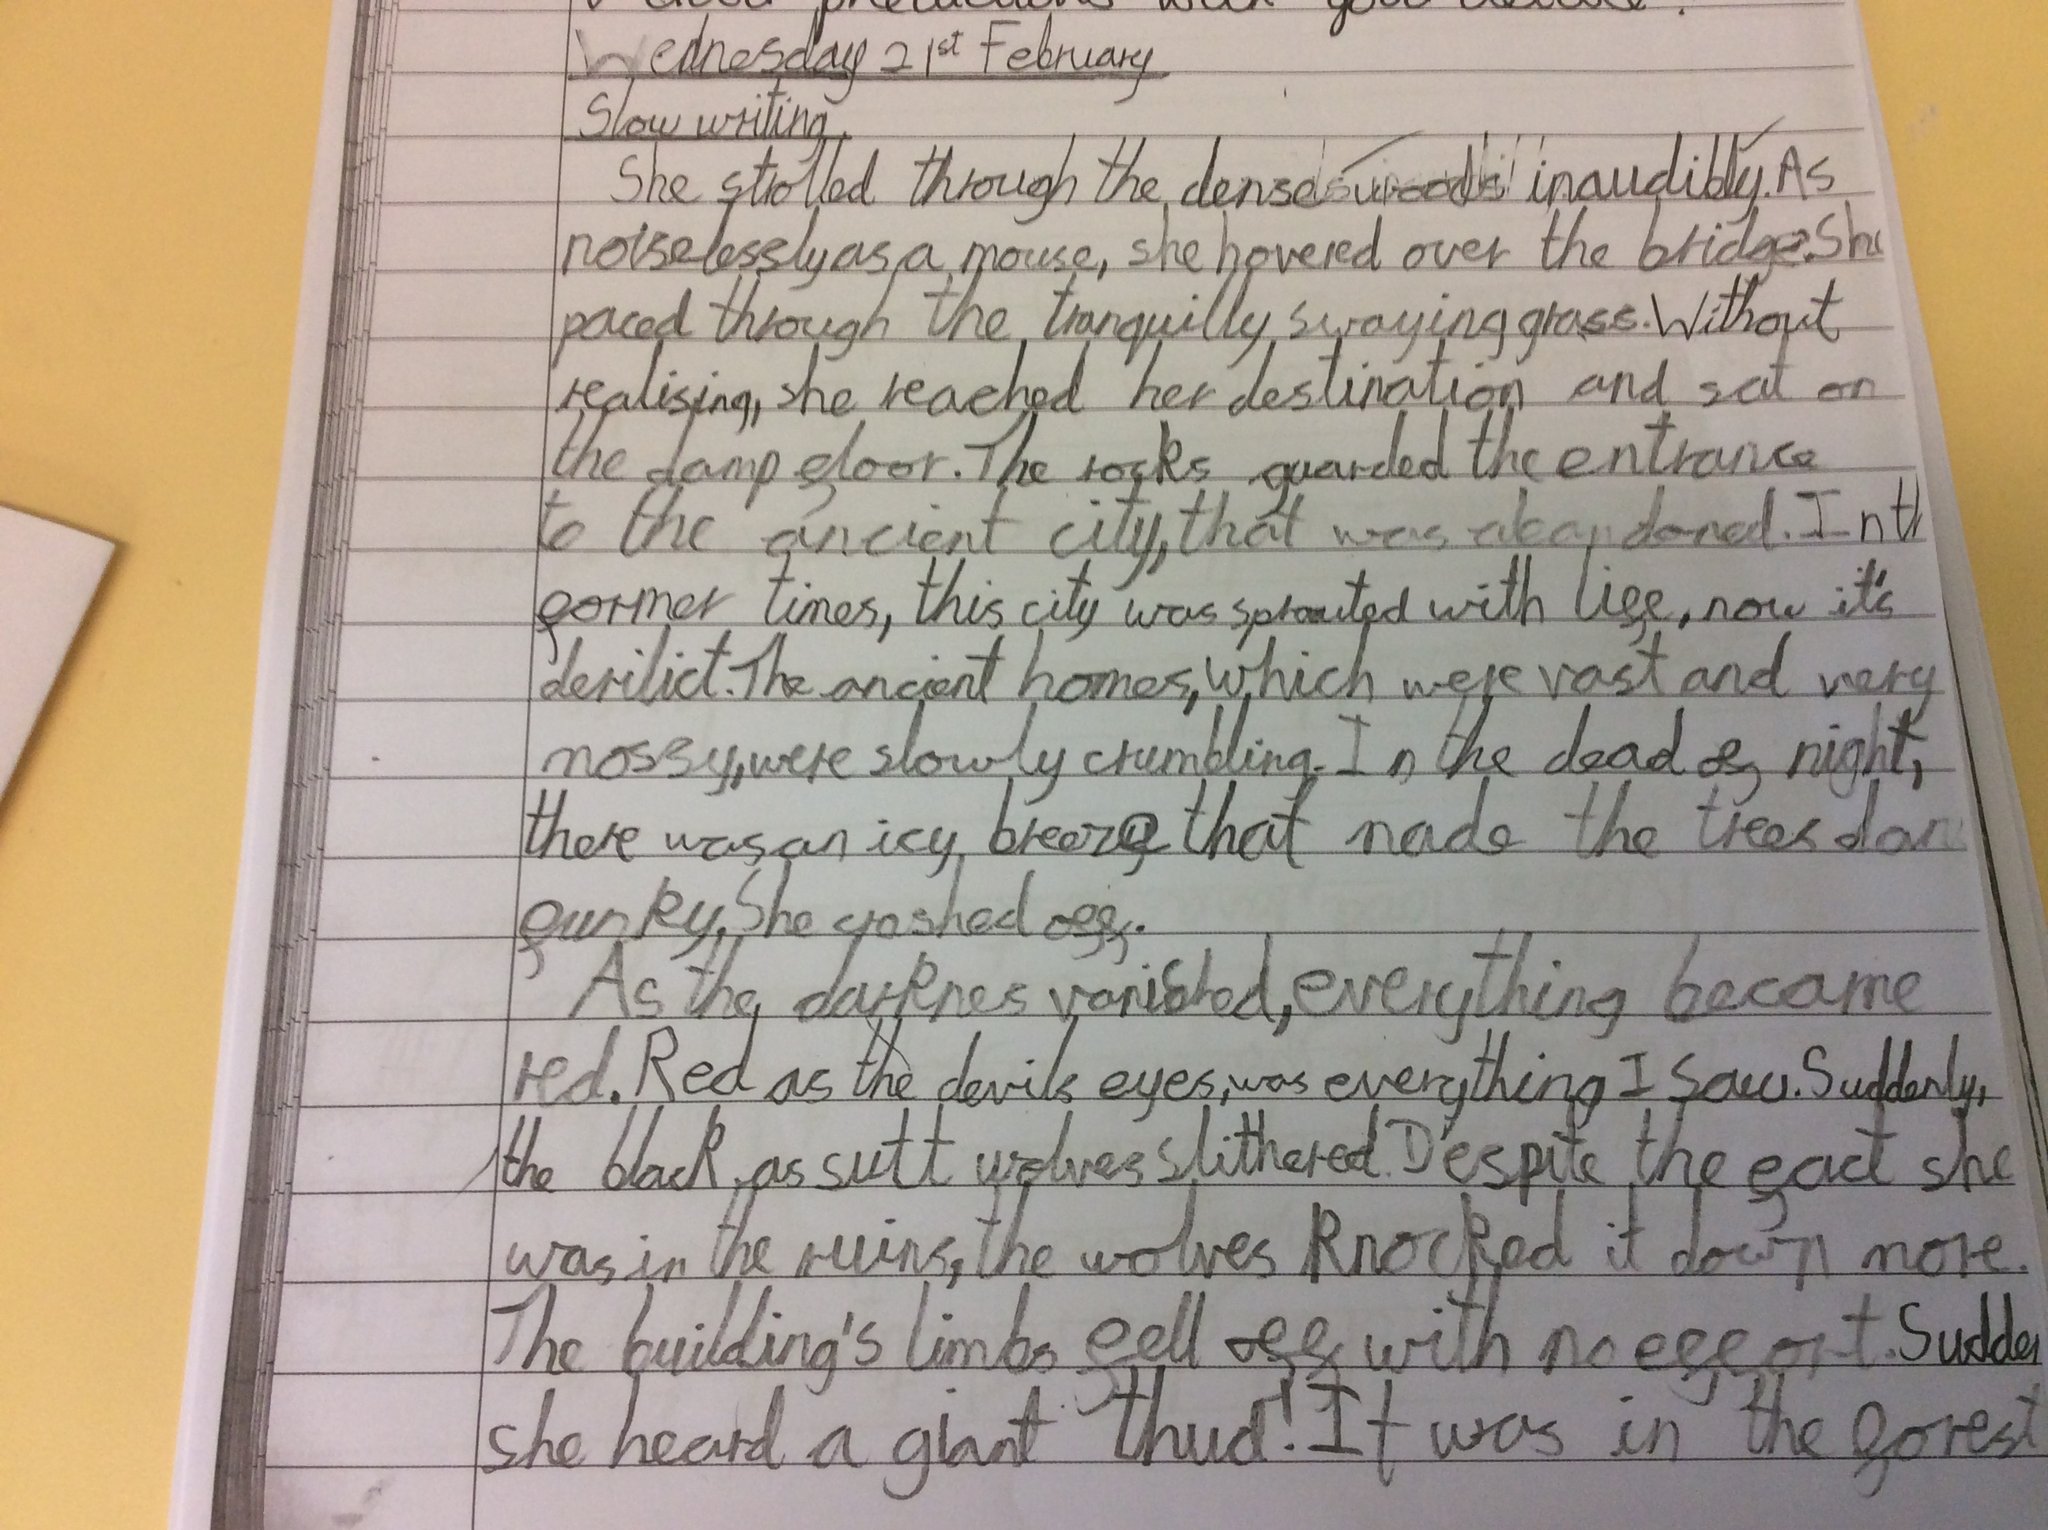 Wednesday 21st February
Slow writing.
She strolled through the dense woods inaudibly. As
noiselessly as a mouse, she hovered over the bridge. She
paced through the tranquilly swaying grass. Without
realising, she reached her destination and sat on
the damp floor. The rocks guarded the entrance
to the ancient city, that was abandoned. In th
former times, this city was sprouted with life, now it's
derilict. The ancient homes, which were vast and very
mossy, were slowly crumbling. In the dead of night,
there was an icy breeze that made the trees dan
funky. She gashed off.
As the darknes vanished, everything became
red. Red as the devils eyes, was everything I saw. Suddenly,
the black as sutt wolves slithered. Despite the fact she
was in the ruins, the wolves knocked it down more.
The building's limbs fell off with no effort. Sudden
she heard a giant thud! It was in the forest